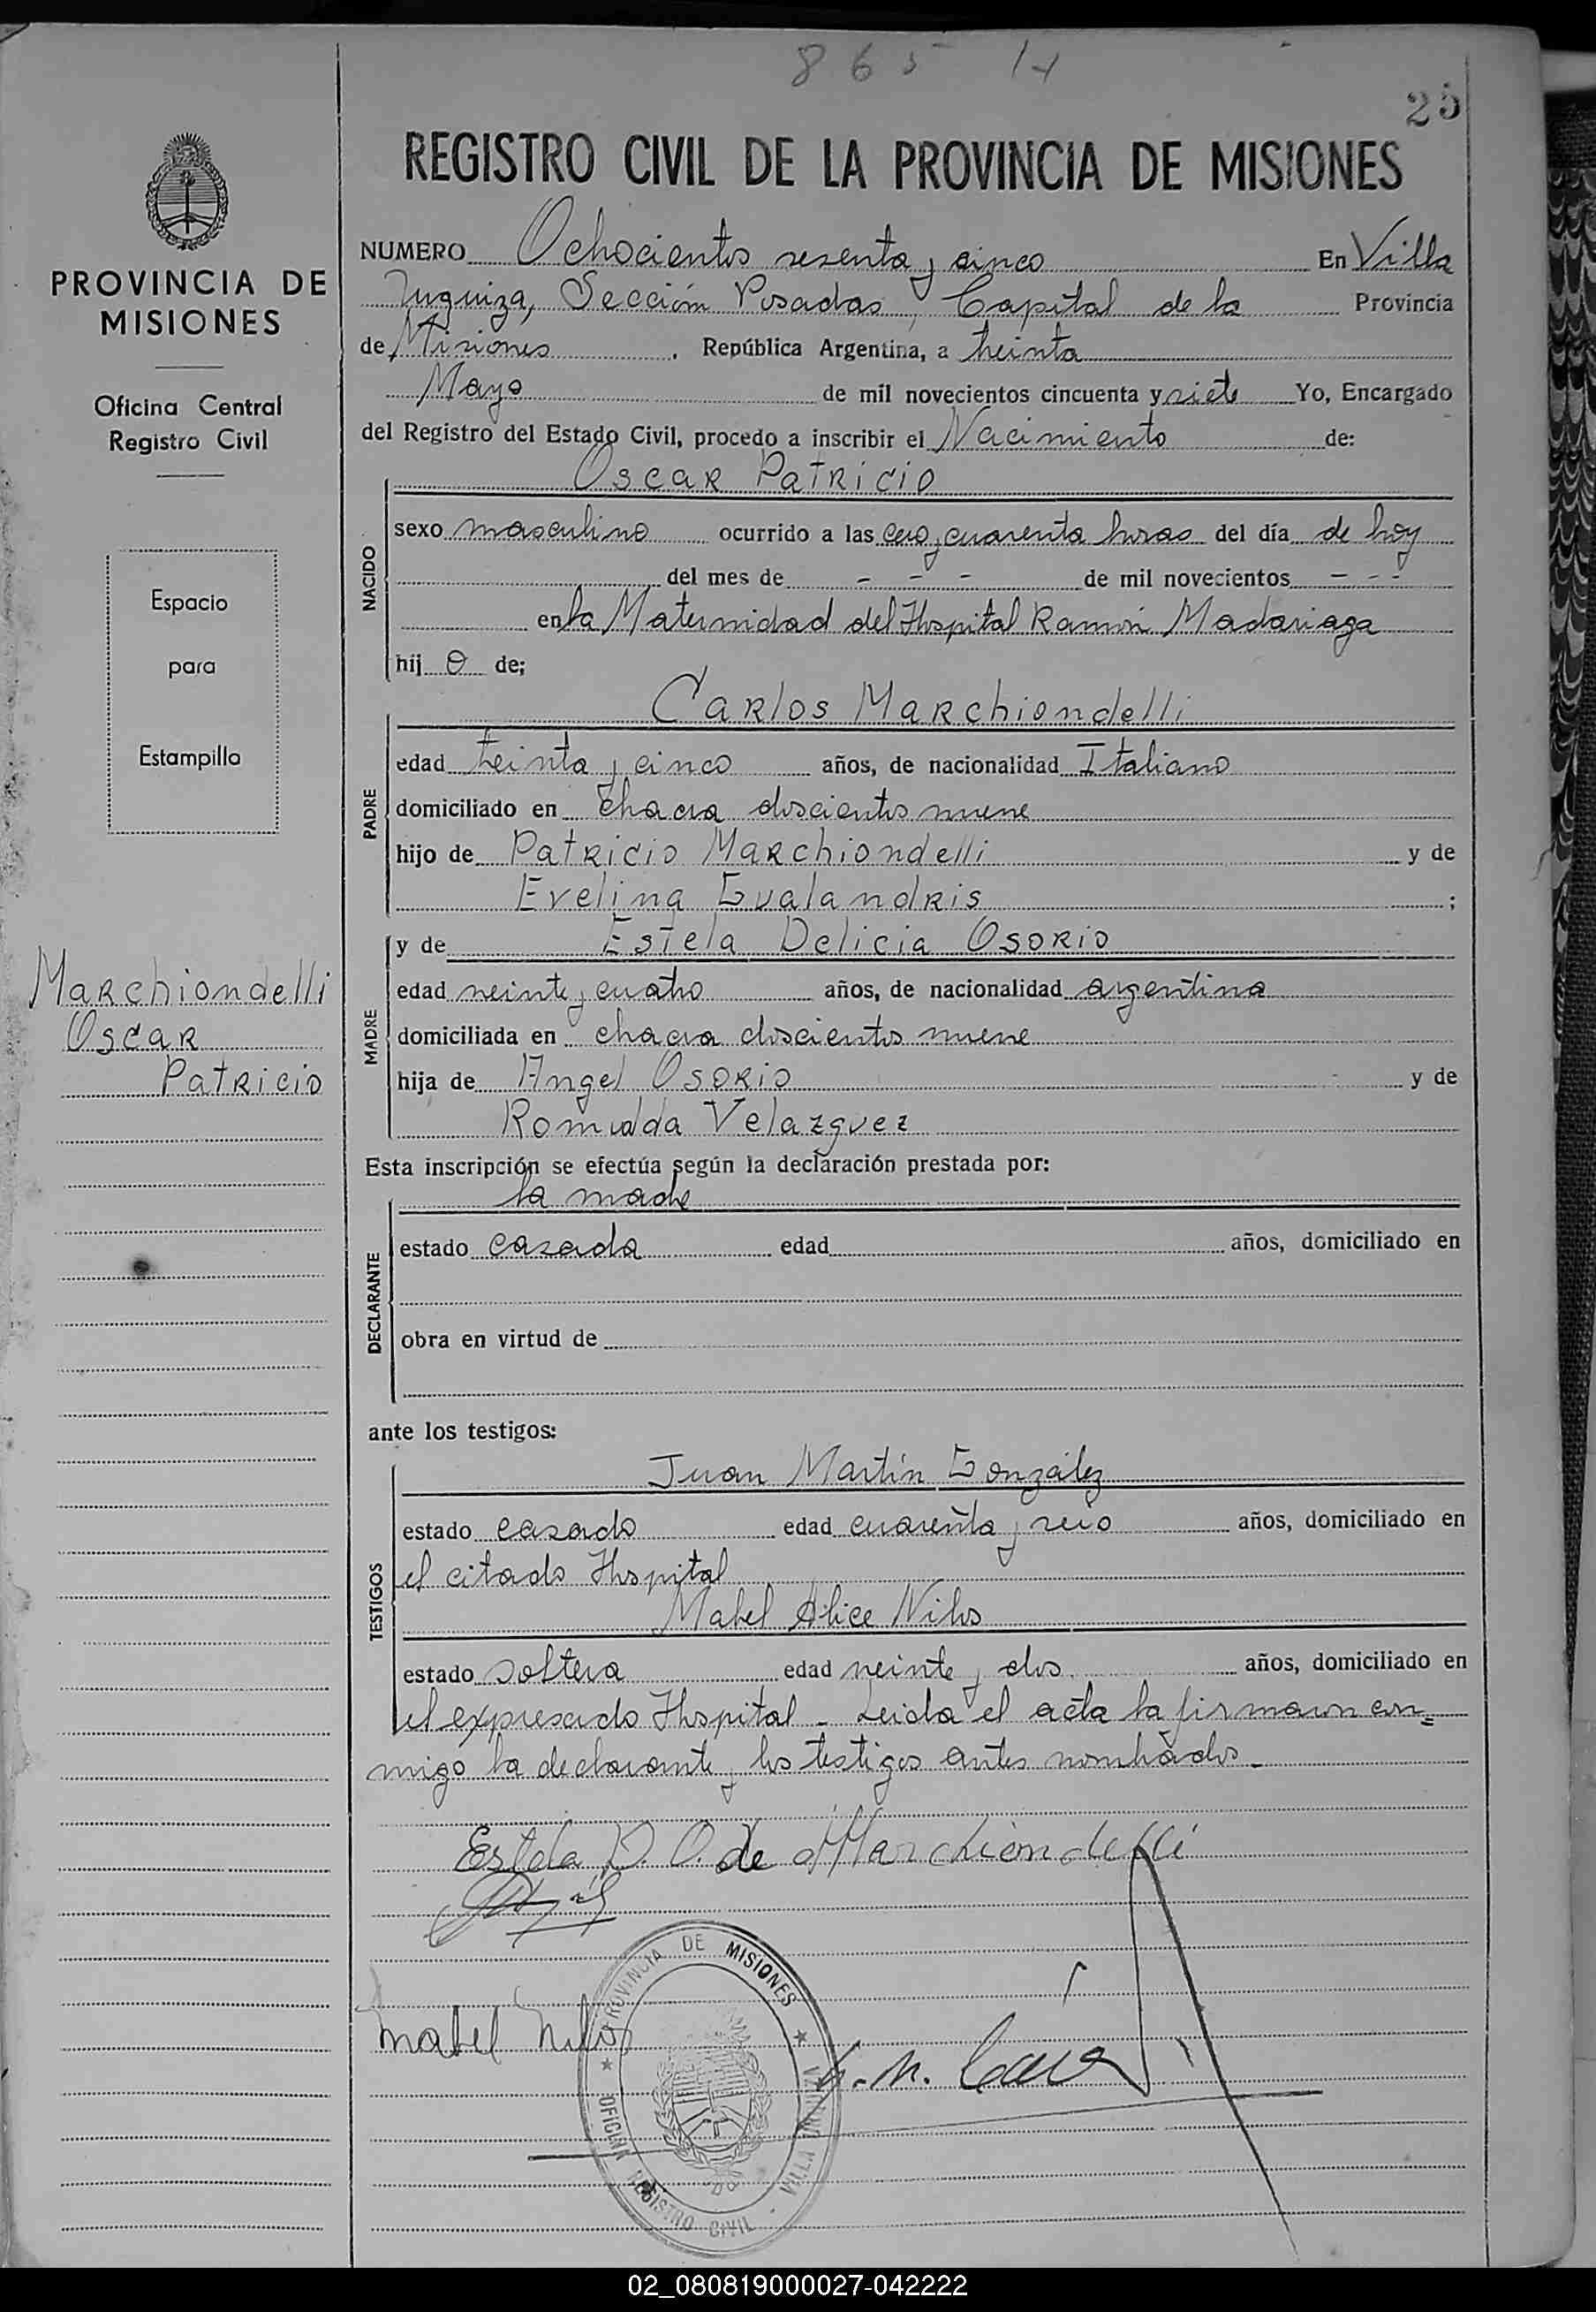 865 14
25
REGISTRO CIVIL DE LA PROVINCIA DE MISIONES
PROVINCIA DE
MISIONES
Oficina Central
Registro Civil
Espacio
para
Estampilla
Marchiondelli
Oscar
Patricio
NUMERO Ochocientos sesenta y cinco En Villa
Urquiza, Sección Posadas, Capital de la Provincia
de Misiones. República Argentina, a treinta
Mayo de mil novecientos cincuenta y siete Yo, Encargado
del Registro del Estado Civil, procedo a inscribir el Nacimiento de:
Oscar Patricio
NACIDO
sexo masculino ocurrido a las cero y cuarenta horas del día de hoy
del mes de - - - de mil novecientos - - -
en la Maternidad del Hospital Ramón Madariaga
hij o de;
Carlos Marchiondelli
PADRE
edad treinta y cinco años, de nacionalidad Italiano
domiciliado en chacra doscientos nueve
hijo de Patricio Marchiondelli y de
Evelina Gualandris ;
y de Estela Delicia Osorio
MADRE
edad veinte y cuatro años, de nacionalidad argentina
domiciliada en chacra doscientos nueve
hija de Angel Osorio y de
Romualda Velazquez
Esta inscripción se efectúa según la declaración prestada por:
la madre
DECLARANTE
estado casada edad años, domiciliado en
obra en virtud de
ante los testigos:
Juan Martín González
TESTIGOS
estado casado edad cuarenta y seis años, domiciliado en
el citado Hospital
Mabel Alice Nilos
estado soltera edad veinte y dos años, domiciliado en
el expresado Hospital - Leida el acta la firmaron con=
migo la declarante y los testigos antes nombrados -
Estela D. O. de Marchiondelli
Mabel Nilos
PROVINCIA DE MISIONES
OFICINA REGISTRO CIVIL - VILLA URQUIZA
02_080819000027-042222